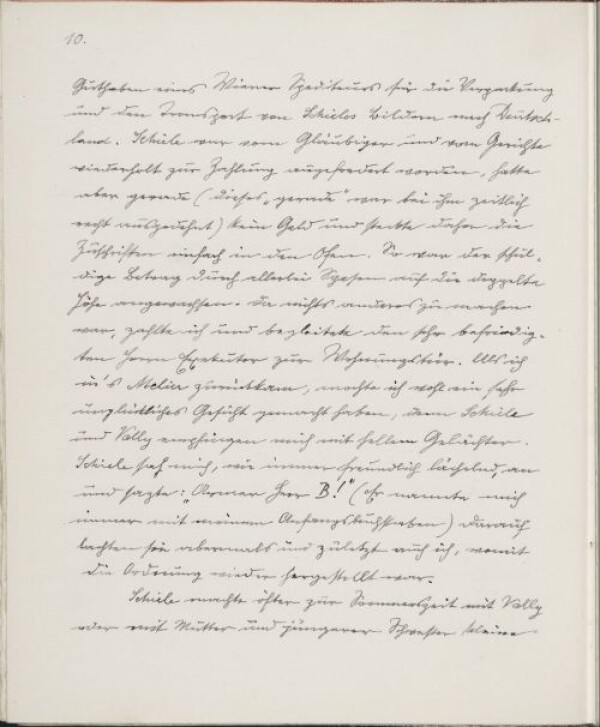 10.
Guthaben eines Wiener Spediteurs für die Verpackung
und den Transport von Schieles Bildern nach Deutsch-
land. Schiele war vom Gläubiger und vom Gerichte
wiederholt zur Zahlung aufgefordert worden, hatte
aber gerade (dieses „gerade“ war bei ihm zeitlich
recht ausgedehnt) kein Geld und steckte daher die
Zuschriften einfach in den Ofen. So war der schul-
dige Betrag durch allerlei Spesen auf die doppelte
Höhe angewachsen. Da nichts anderes zu machen
war, zahlte ich und begleitete den sehr befriedig-
ten Herrn Exekutor zur Wohnungstür. Als ich
in's Atelier zurückkam, mochte ich wohl ein sehr
unglückliches Gesicht gemacht haben, denn Schiele
und Vally empfingen mich mit hellem Gelächter.
Schiele sah mich, wie immer freundlich lächelnd, an
und sagte: „Armer Herr B!“ (Er nannte mich
immer mit meinem Anfangsbuchstaben) Darauf
lachten sie abermals und zuletzt auch ich, womit
die Ordnung wieder hergestellt war.
Schiele machte öfter zur Sommerszeit mit Vally
oder mit Mutter und jüngerer Schwester kleine